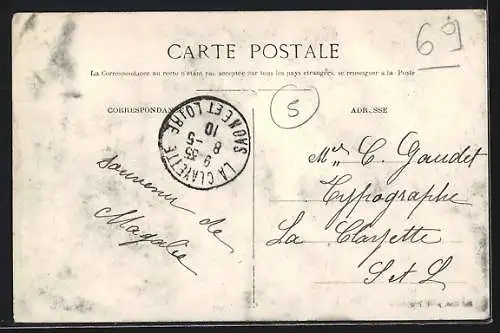 69
CARTE POSTALE
La Correspondance au recto n'étant pas acceptée par tous les pays étrangers, se renseigner à la Poste
5
CORRESPONDAN
ADRESSE
LA CLAYETTE SAONE ET LOIRE
9-35
8 -5
10
Souvenir de
Magalie
C. Gaudet
Typographe
La Clayette
S et L